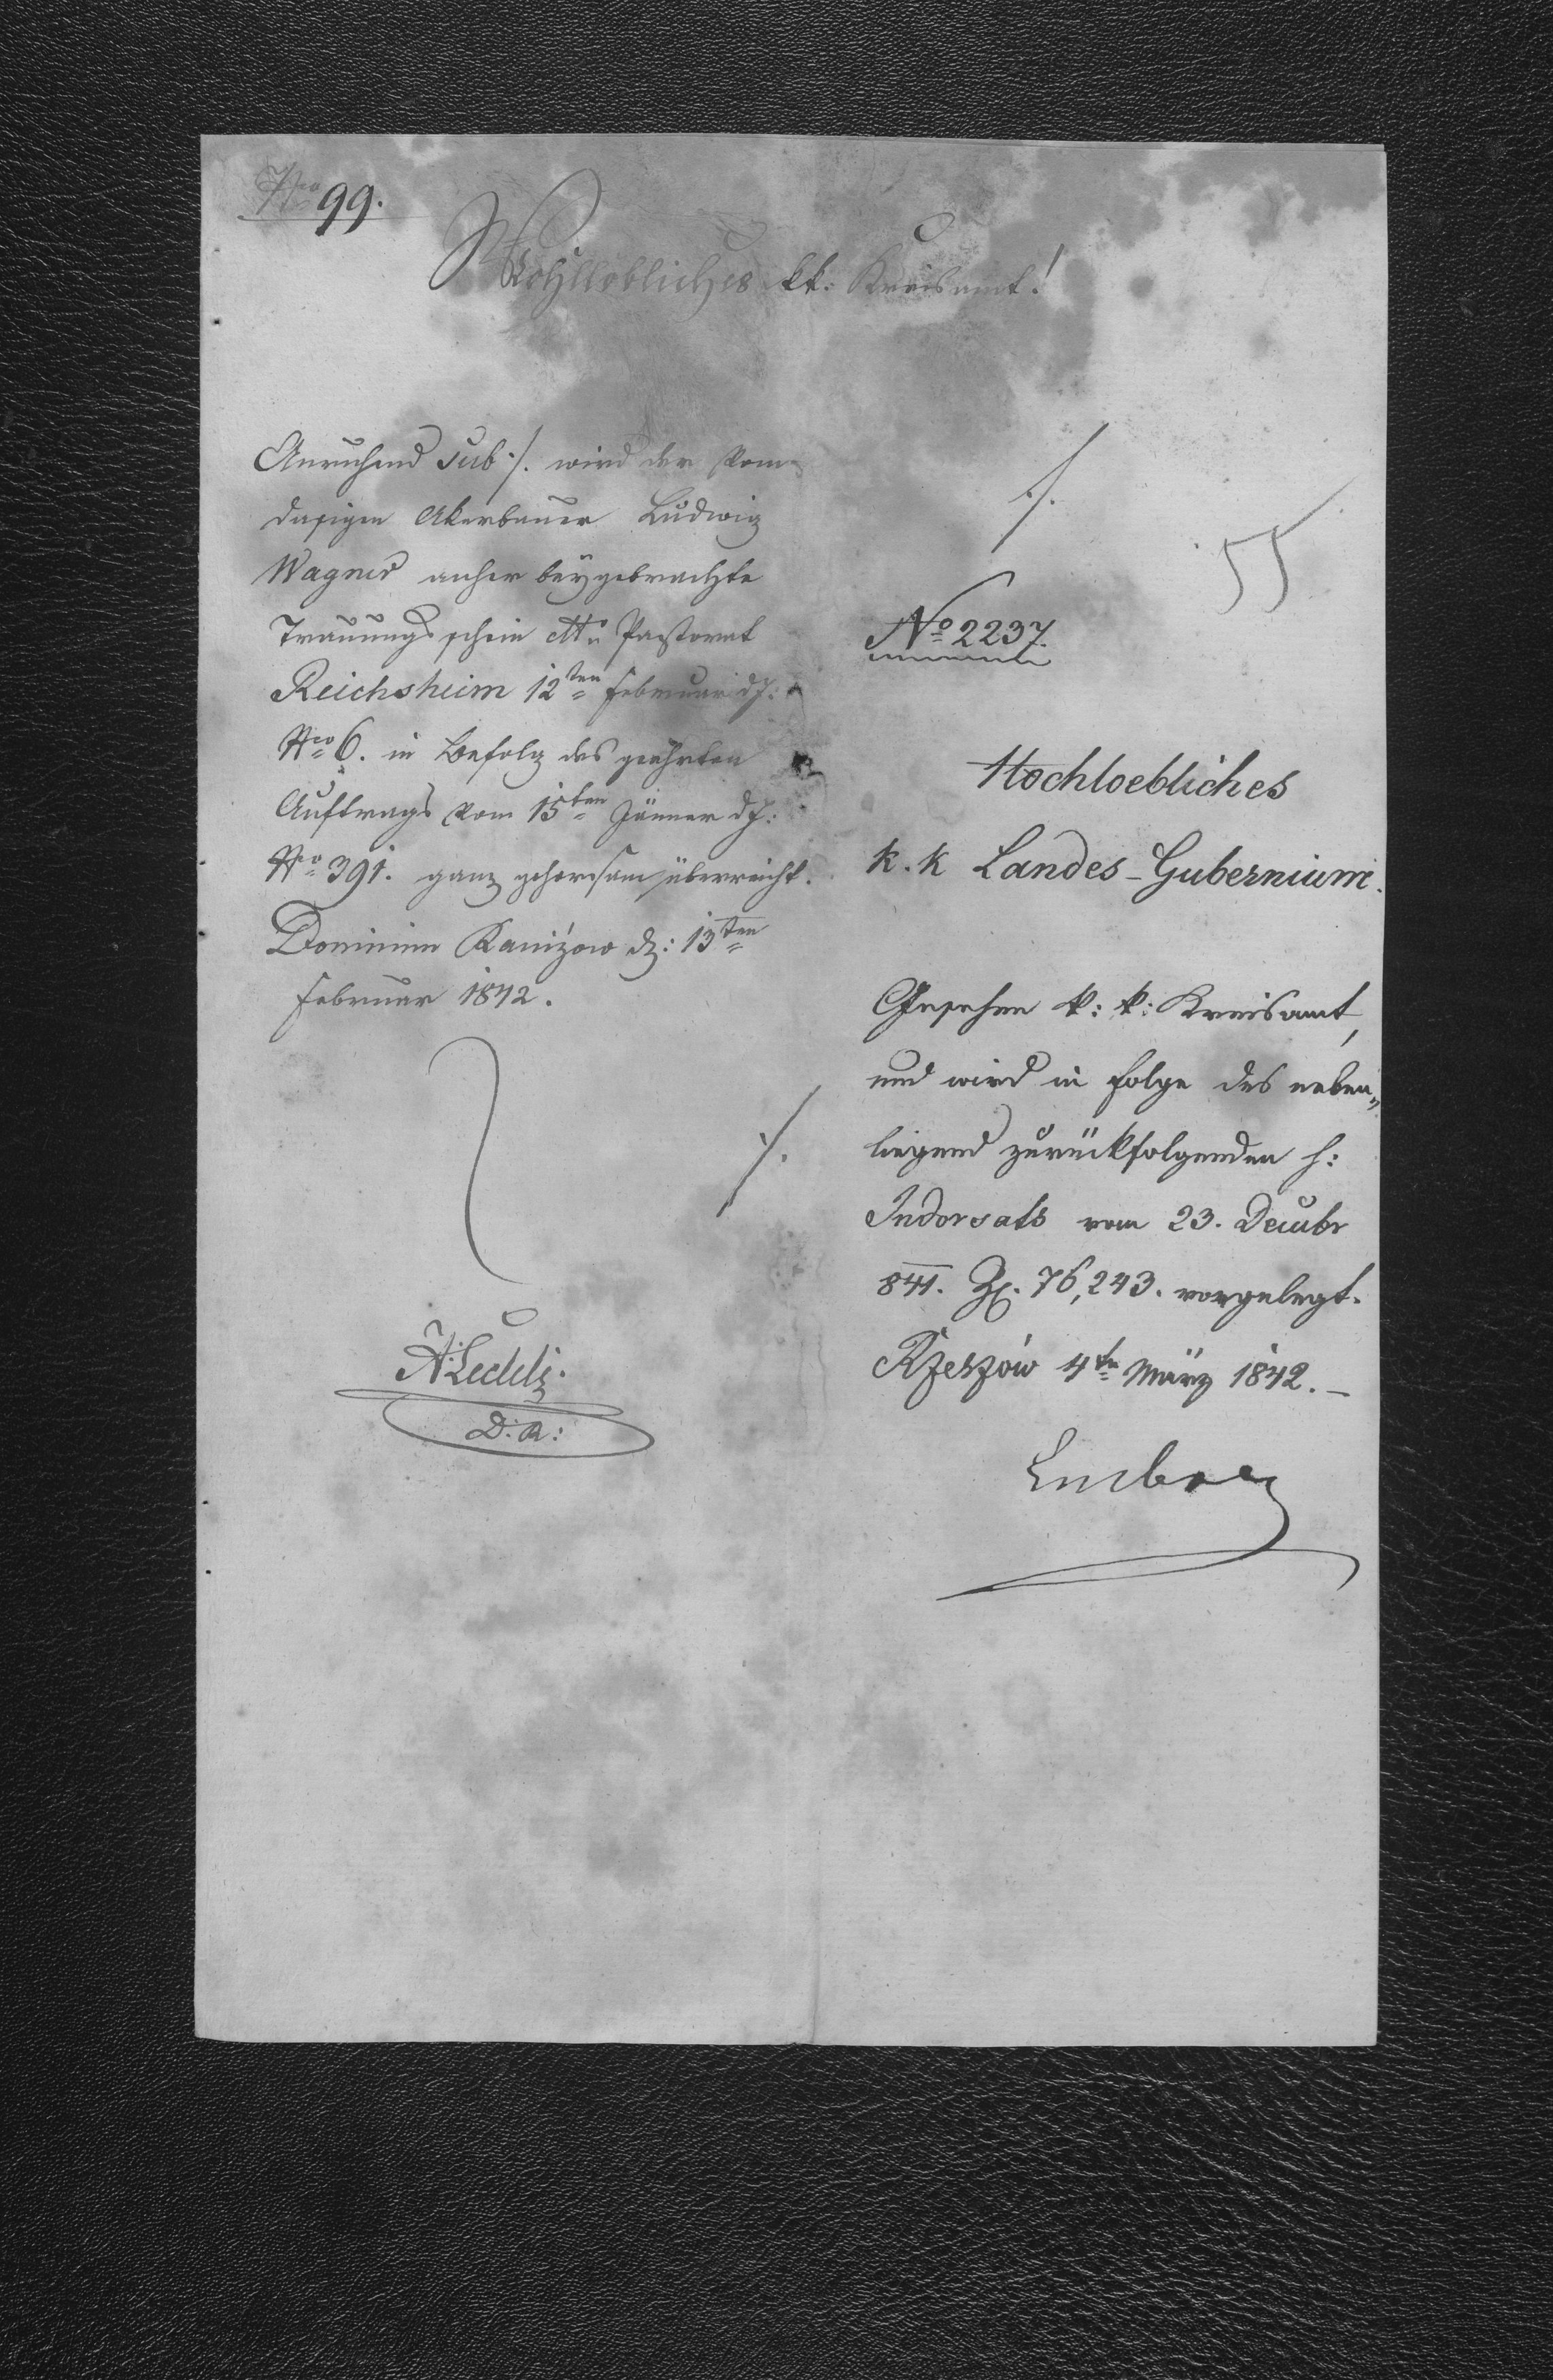 Nro 99.
Wohllobliches kk: Kreisamt!
Anruhend sub ./. wird der vom
dasigen Akerbauer Ludwig
Wagner anher beÿgebrachte
Trauungsschein Pastorat
Reichsheim 12ten Februar dJ:
Nro 6. in Befolg des geehrten
Auftrags vom 15ten Jänner dJ:
Nro 391. ganz gehorsam überreicht.
Dominium Ranizow d: 13ten
Februar 1842.
./.
D: R:
./.
55
No 2237.
Hochloebliches
k. k Landes-Gubernium.
Gesehen k: k: Kreisamt,
und wird in Folge des neben„
liegend zurückfolgenden h:
Indorsats vom 23. Decubr
841. Zl. 76,243. vorgelegt.
Rzeszów 4tn März 1842. –